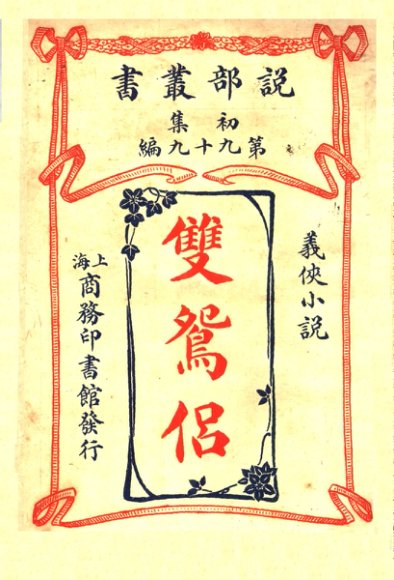 說部叢書
初集
第九十九編
義俠小說
雙鴛侶
上海
商務印書館發行